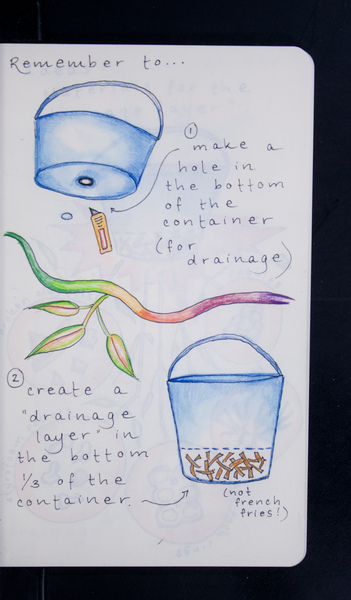 Remember to...
① make a
hole in
the bottom
of the
container
(for
drainage)
② create a
"drainage
layer" in
the bottom
⅓ of the
container.
(not
french
fries!)